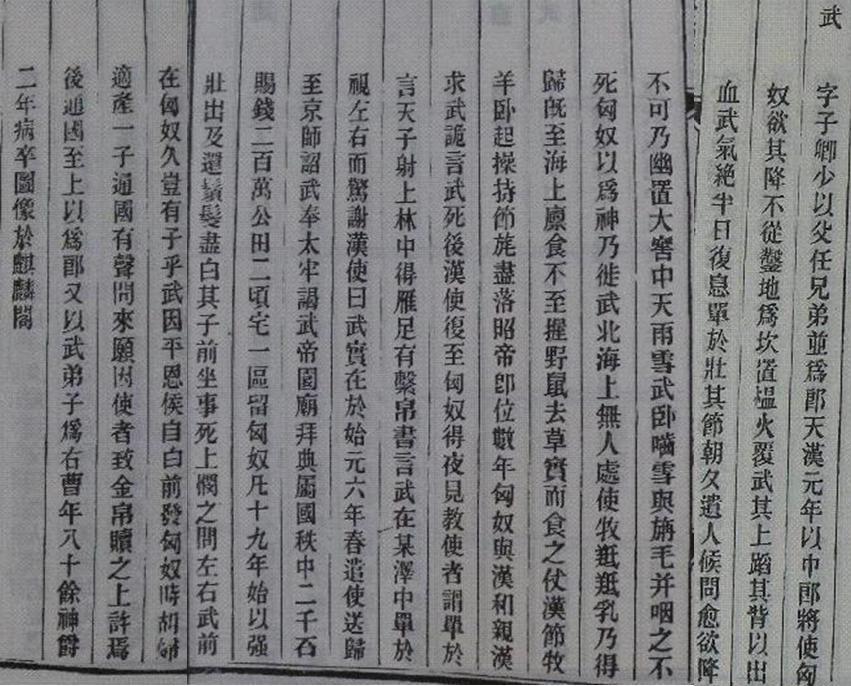 武
字子卿少以父任兄弟並爲郎天漢元年以中郎將使匈
奴欲其降不從鑿地爲坎置煴火覆武其上蹈其背以出
血武氣絶半日復息單於壯其節朝夕遣人候問愈欲降
不可乃幽置大窖中天雨雪武卧嚙雪與旃毛并咽之不
死匈奴以爲神乃徙武北海上無人處使牧羝羝乳乃得
歸旣至海上廪食不至握野鼠去草實而食之仗漢節牧
羊卧起操持節旄盡落昭帝卽位數年匈奴與漢和親漢
求武詭言武死後漢使復至匈奴得夜見教使者謂單於
言天子射上林中得雁足有繫帛書言武在某澤中單於
視左右而驚謝漢使曰武實在於始元六年春遣使送歸
至京師詔武奉太牢謁武帝園廟拜典屬國秩中二千石
賜錢二百萬公田二頃宅一區留匈奴凡十九年始以强
壯出及還鬚髮盡白其子前坐事死上憫之問左右武前
在匈奴久豈有子乎武因平恩侯自白前發匈奴時胡婦
適產一子通國有聲問來願因使者致金帛贖之上許焉
後通國至上以爲郎又以武弟子爲右曹年八十餘神爵
二年病卒圖像於麒麟閣